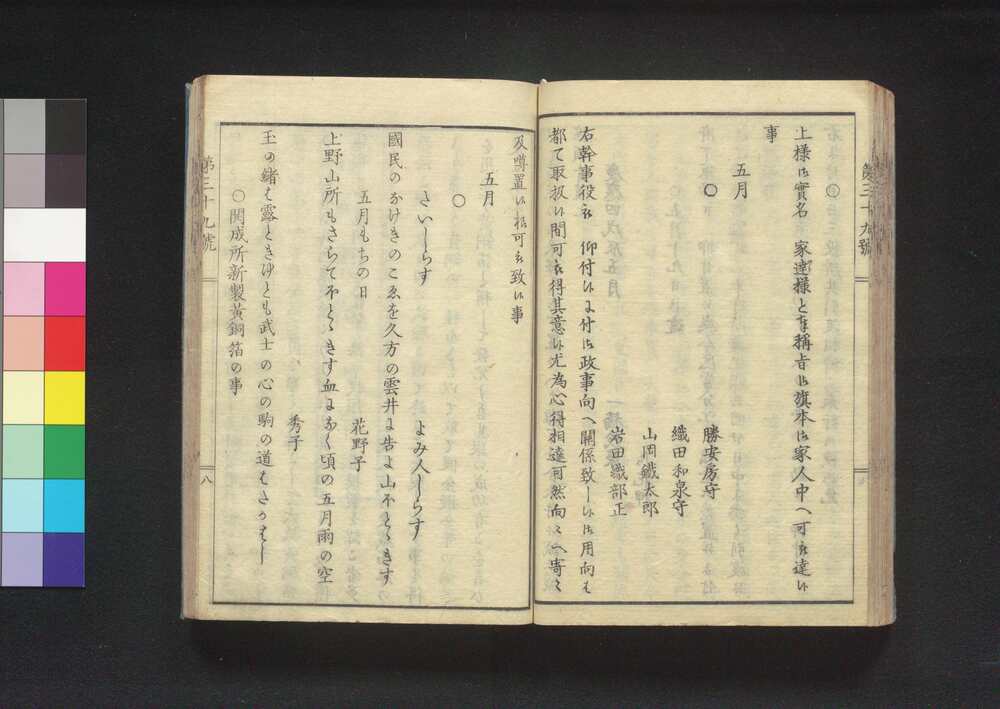 第三十九號
上樣御實名 家達樣と奉稱旨御旗本御家人中へ可被達候
事
五月
○
勝安房守
織田和泉守
山岡鐵太郎
岩田織部正
右幹事役被 仰付候に付御政事向へ關係致し候御用向も
都て取扱候間可被得其意候尤為心得相達可然向々へ寄々
及噂置候樣可被致候事
五月
○
さいしらす よみ人しらす
國民のなけきのこゑを久方の雲井に告よ山ほとゝきす
五月もちの日 花野子
上野山所もさらてほとゝきす血になく頃の五月雨の空
秀子
玉の緒は露ときゆとも武士の心の駒の道はさかはし
○開成所新製黃銅箔の事
第三十九號
八